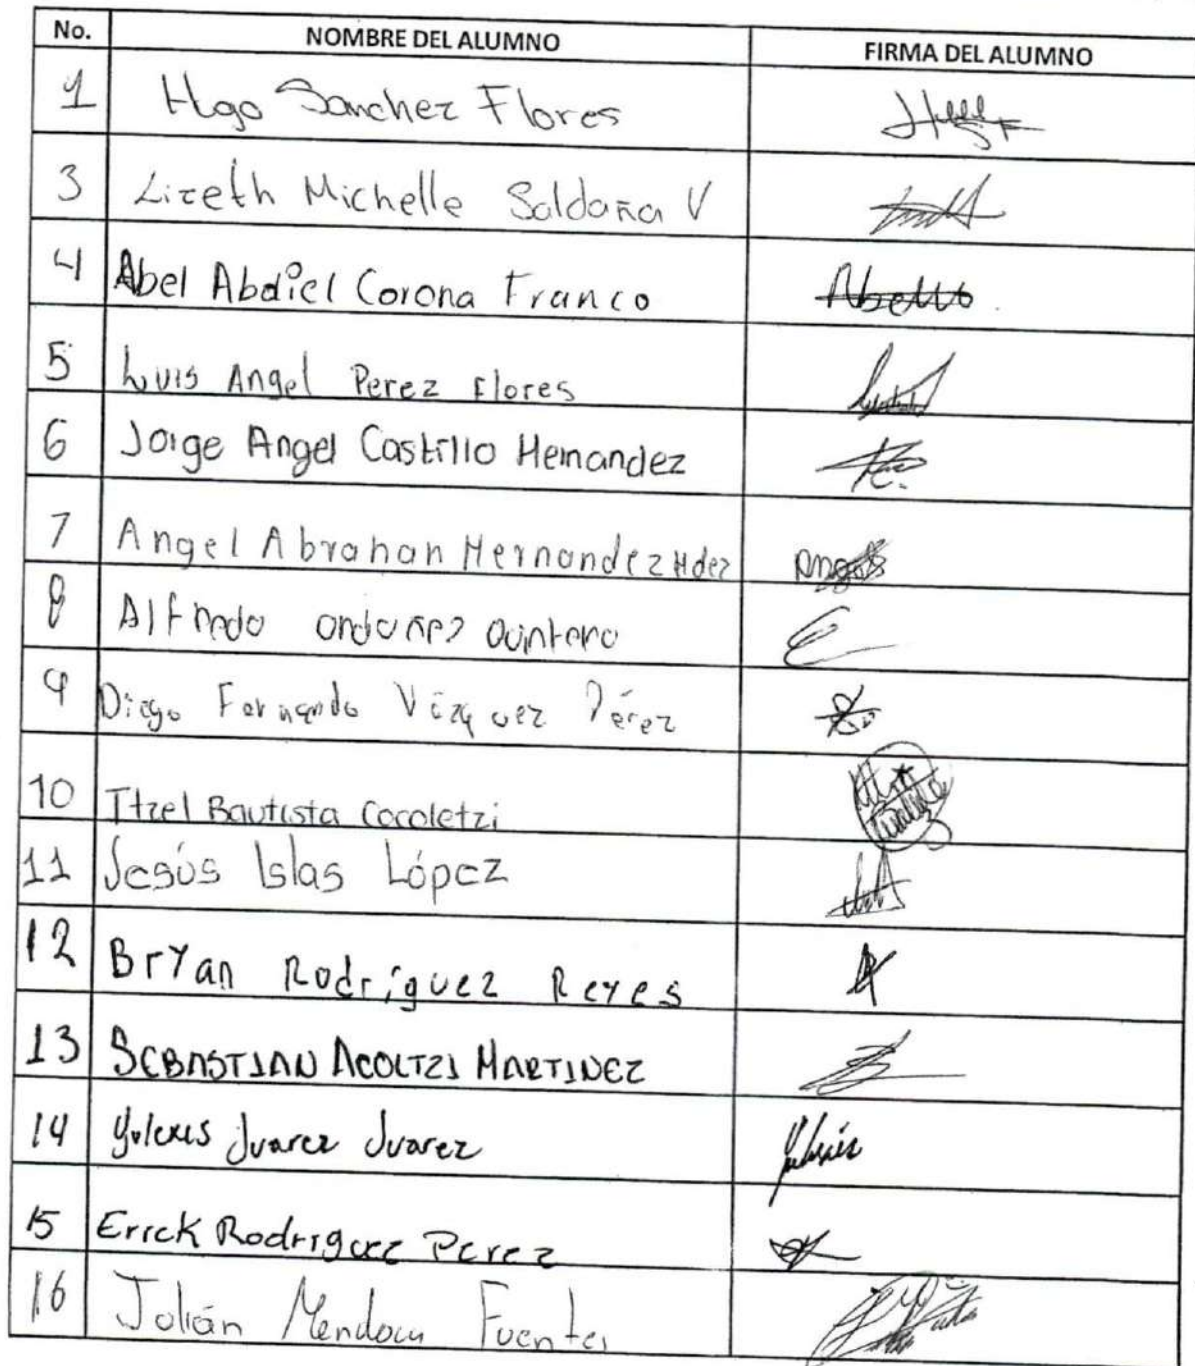 No. NOMBRE DEL ALUMNO FIRMA DEL ALUMNO
1 Hugo Sanchez Flores
3 Lizeth Michelle Saldaña V
4 Abel Abdiel Corona Franco
5 Luis Angel Perez Flores
6 Jorge Angel Castillo Hernandez
7 Angel Abrahan Hernandez Hdez Angel
8 Alfredo ordoñez Quintero
9 Diego Fernando Vázquez Pérez
10 Itzel Bautista Cocoletzi
11 Jesús Islas López
12 Bryan Rodríguez Reyes
13 SEBASTIAN ACOLTZI MARTINEZ
14 Yulexis Juarez Juarez
15 Erick Rodriguez Perez
16 Julián Mendoza Fuentes